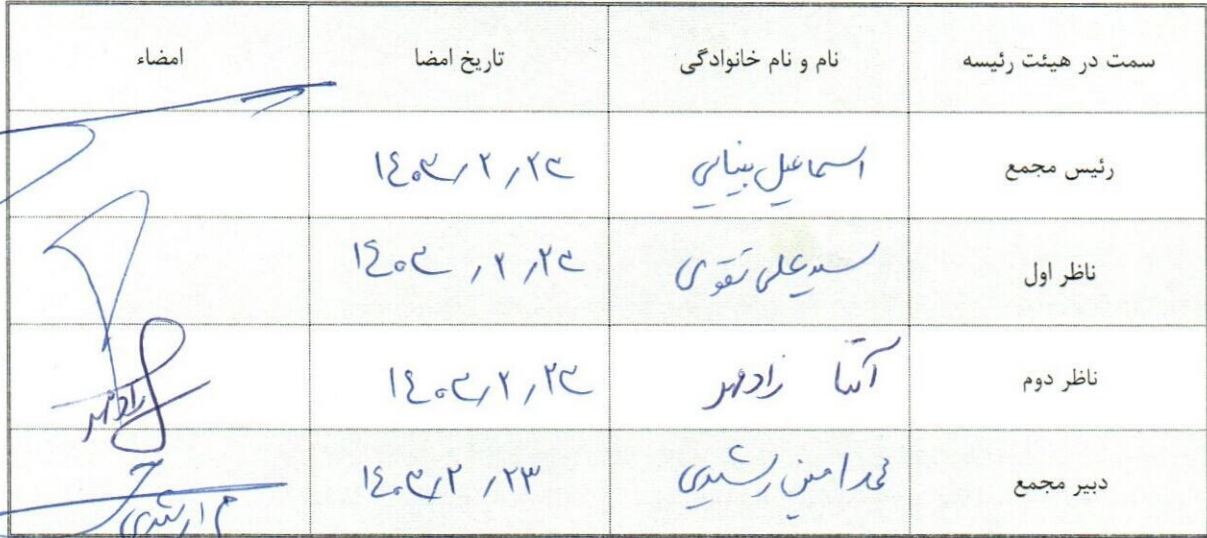 سمت در هیئت رئیسه نام و نام خانوادگی تاریخ امضا امضاء
رئیس مجمع اسماعیل بینایی ۱۴۰۳/۲/۲۳
ناظر اول سیدعلی تقوی ۱۴۰۳/۲/۲۳
ناظر دوم آتنا رادمهر ۱۴۰۳/۲/۲۳ رادمهر
دبیر مجمع محمدامین رشیدی ۱۴۰۳/۲/۲۳